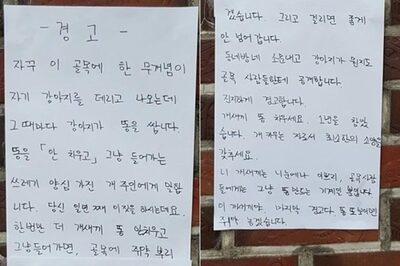 - 경고 -
자꾸 이 골목에 한 무개념이
자기 강아지를 데리고 나오는데
그때마다 강아지가 똥을 쌉니다.
똥을 「안 치우고」 그냥 들어가는
쓰레기 양심 가진 개 주인에게 말합
니다. 당신 일년 째 이짓을 하시는데요.
한번만 더 개새끼 똥 안치우고
그냥들어가면, 골목에 쥐약 뿌리
겠습니다. 그리고 걸리면 좋게
안 넘어갑니다.
동네방네 소문내고 강아지가 뭔지도
골목 사람들한테 공개합니다.
진지하게 경고합니다.
개새끼 똥 치우세요. 1년을 참았
습니다. 개 키우는 자로서 최소한의 소양을
갖추세요.
니 개새끼는 니눈에나 이쁘지, 골목사람
들에게는 그냥 똥 만드는 기계일 뿐입니다.
이 개새끼야. 마지막 경고다 똥 또 발견되면
쥐약 놓겠습니다.